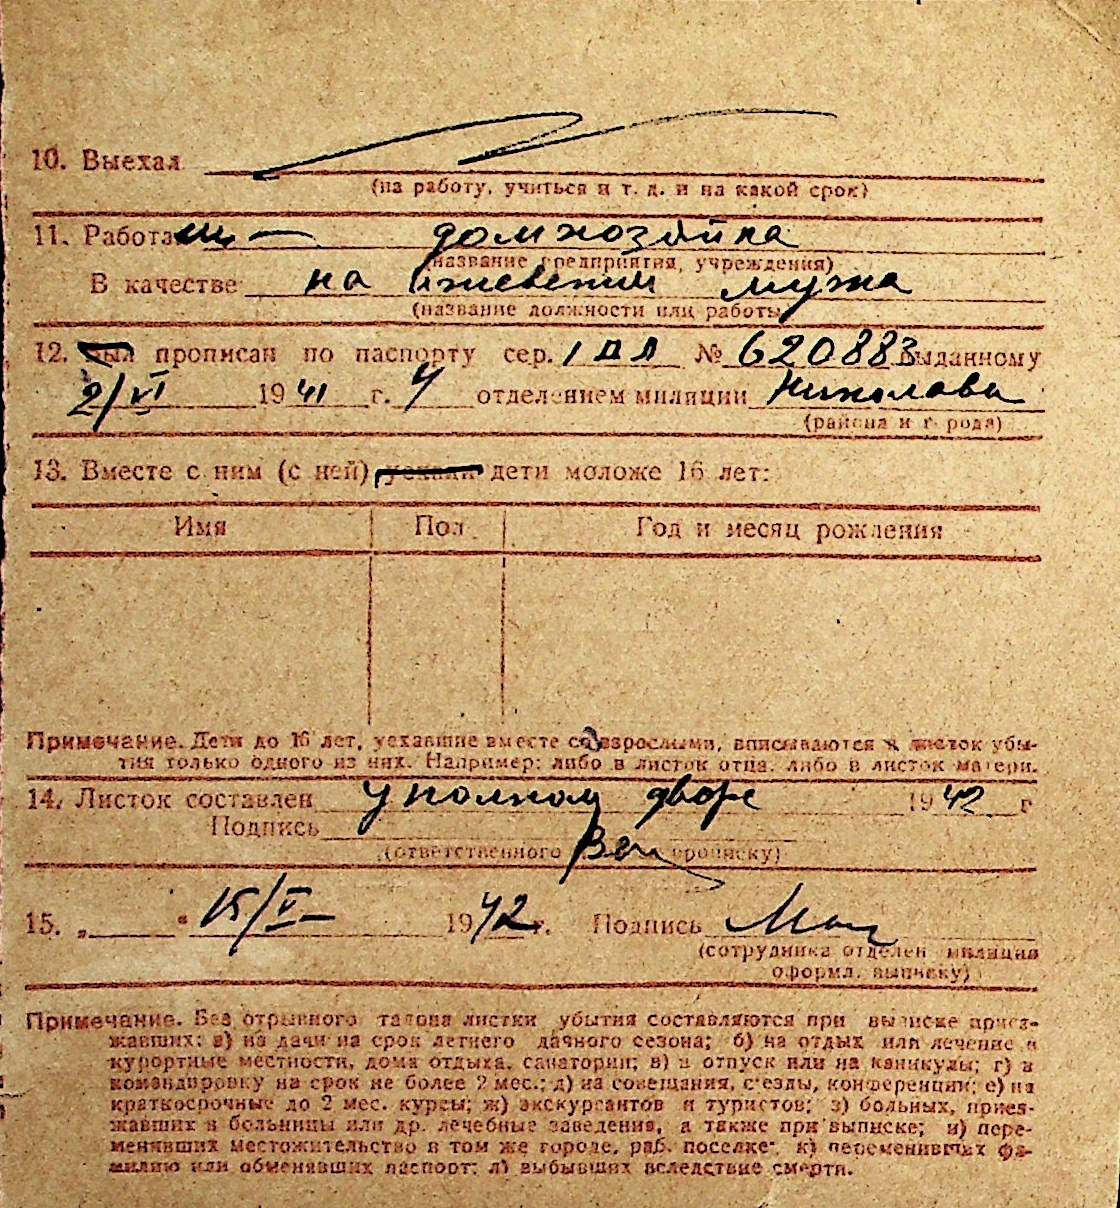 10. Выехал
(на работу, учиться и т. д. и на какой срок)
11. Работа домхозяйка
(название предприятия, учреждения)
В качестве на ижевении мужа
(название должности или работы
12. был прописан по паспорту сер. I ДЛ № 620883 выданному
2/VI 1941 г. 4 отделением милиции Николаева
(района и города)
13. Вместе с ним (с ней) уехали дети моложе 16 лет:
Имя Пол Год и месяц рождения
Примечание. Дети до 16 лет, уехавшие вместе со взрослыми, вписываются в листок убы-
тия только одного из них. Например: либо в листок отца, либо в листок матери.
14. Листок составлен уполном двора 1942 г
Подпись
(ответственного прописку)
15. „ “ 15/V 1942 г. Подпись
(сотрудника отделен милиции
оформл. выписку)
Примечание. Без отрывного талона листки убытия составляются при выписке приез-
жавших: а) на дачи на срок летнего дачного сезона; б) на отдых или лечение в
курортные местности, дома отдыха, санатории; в) в отпуск или на каникулы; г) в
командировку на срок не более 2 мес.; д) на совещания, с'езды, конференции; е) на
краткосрочные до 2 мес. курсы; ж) экскурсантов и туристов; з) больных, приез-
жавших в больницы или др. лечебные заведения, а также при выписке; и) пере-
менивших местожительство в том же городе, раб. поселке; к) переменивших фа-
милию или обменявших паспорт; л) выбывших вследствие смерти.